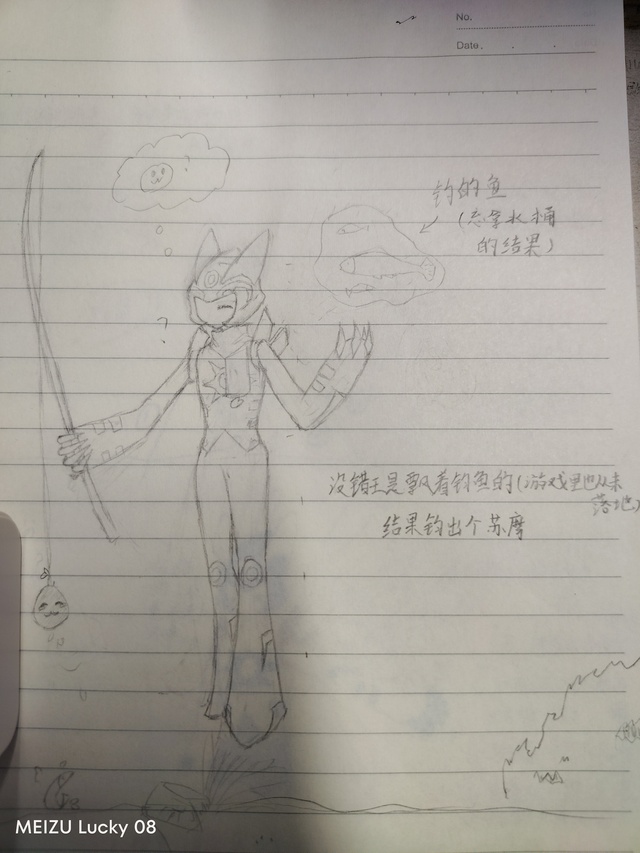 No.
Date.
钓的鱼
(忘拿水桶
的结果)
?
没错王是飘着钓鱼的(游戏里也从未
落地)
结果钓出个苏摩
MEIZU Lucky 08